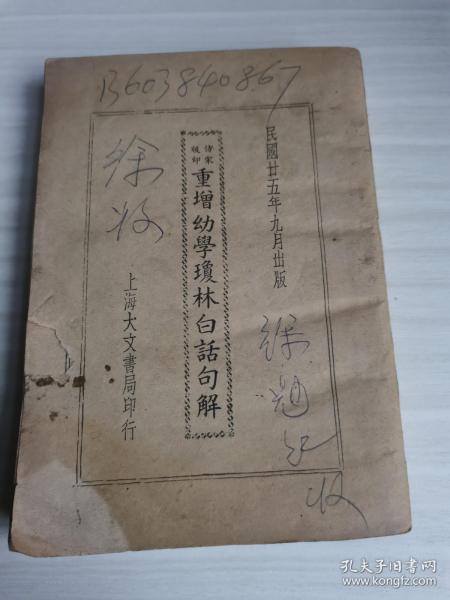 13603840867
民國廿五年九月出版
重增幼學瓊林白話句解
上海大文書局印行
徐
收
孔夫子旧书网
www.kongfz.com